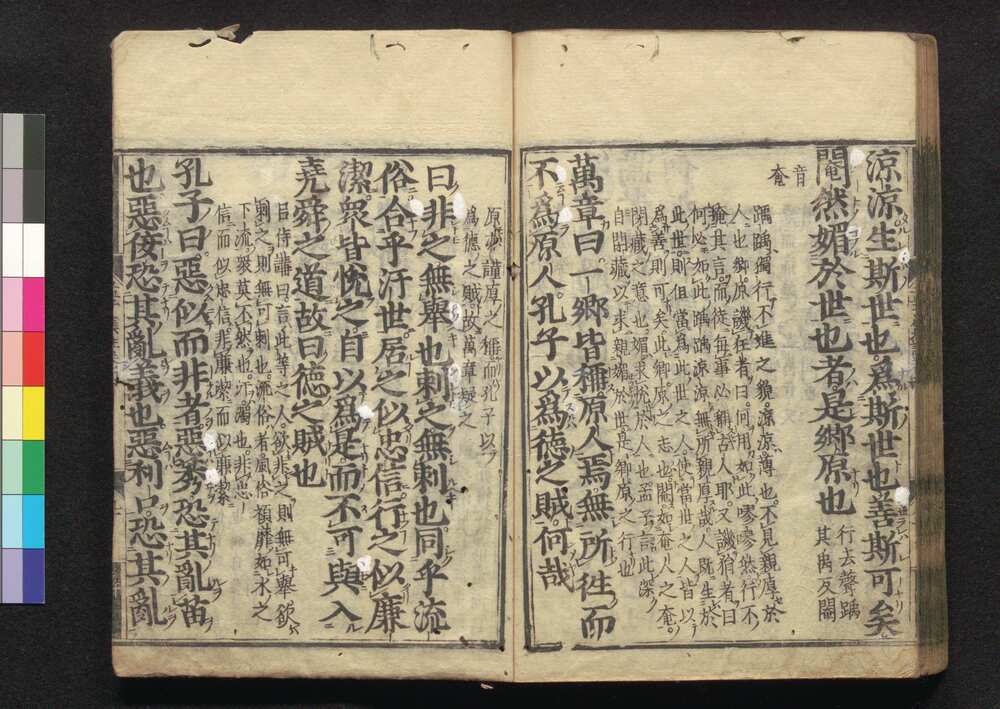 涼涼生斯世也爲斯世也善斯可矣
閹然媚於世也者是鄉原也
行去聲踽
其禹反閹
音
奄
踽踽獨行不進之貌涼涼薄也不見親厚於
人也鄉原譏狂者曰何用如此嘐嘐然行不
掩其言而徒每事必稱古人耶又譏狷者曰
何必如此踽踽涼涼無所親厚哉人既生於
此世則但當爲此世之人使當世之人皆以
爲善則可矣此鄉原之志也閹如奄人之奄
閉藏之意也媚求悅於人也孟子言此深
自閉藏以求親媚於世是鄉原之行也
萬章曰一鄉皆稱原人焉無所往而
不爲原人孔子以爲德之賊何哉
原亦謹厚之稱而孔子以
爲德之賊故萬章疑之
曰非之無舉也刺之無刺也同乎流
俗合乎汙世居之似忠信行之似廉
潔衆皆悅之自以爲是而不可與入
堯舜之道故曰德之賊也
呂侍講曰言此等之人欲非之則無可舉欲
刺之則無可刺也流俗者風俗頹靡如水之
下流衆莫不然也汙濁也非忠
信而似忠信非廉潔而似廉潔
孔子曰惡似而非者惡莠恐其亂苗
也惡佞恐其亂義也惡利口恐其亂